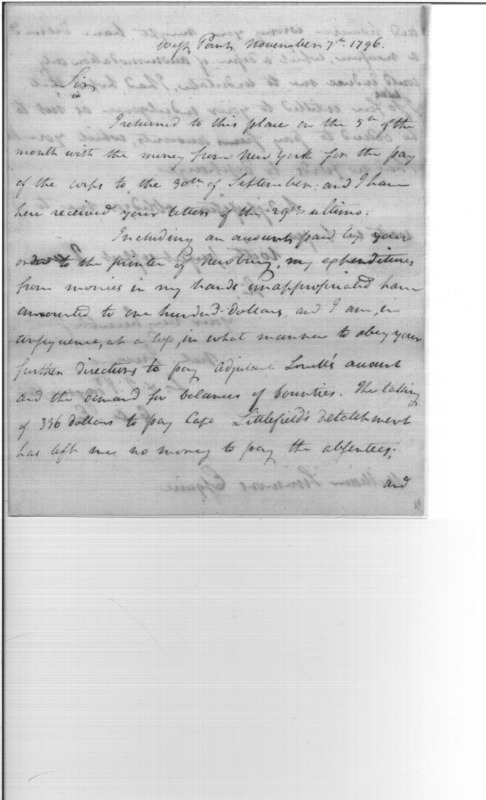 West Point, November 7th. 1796.
Sir,
I returned to this place on the 5th of the
month with the money from New York for the pay
of the corps to the 30th of September; and I have
here received your letters of the 29th ultimo.
Including an account paid by your
order to the printer of Newburg, my expenditures
from monies in my hands unappropriated have
amounted to one hundred dollars, and I am, in
consequence, at a loss, in what manner to obey your
further directions to pay adjutant Lovell's amount
and the demand for balances of bounties. The taking
of 336 dollars to pay Capt Littlefield's detatchment
has left me no money to pay the absentees;
and